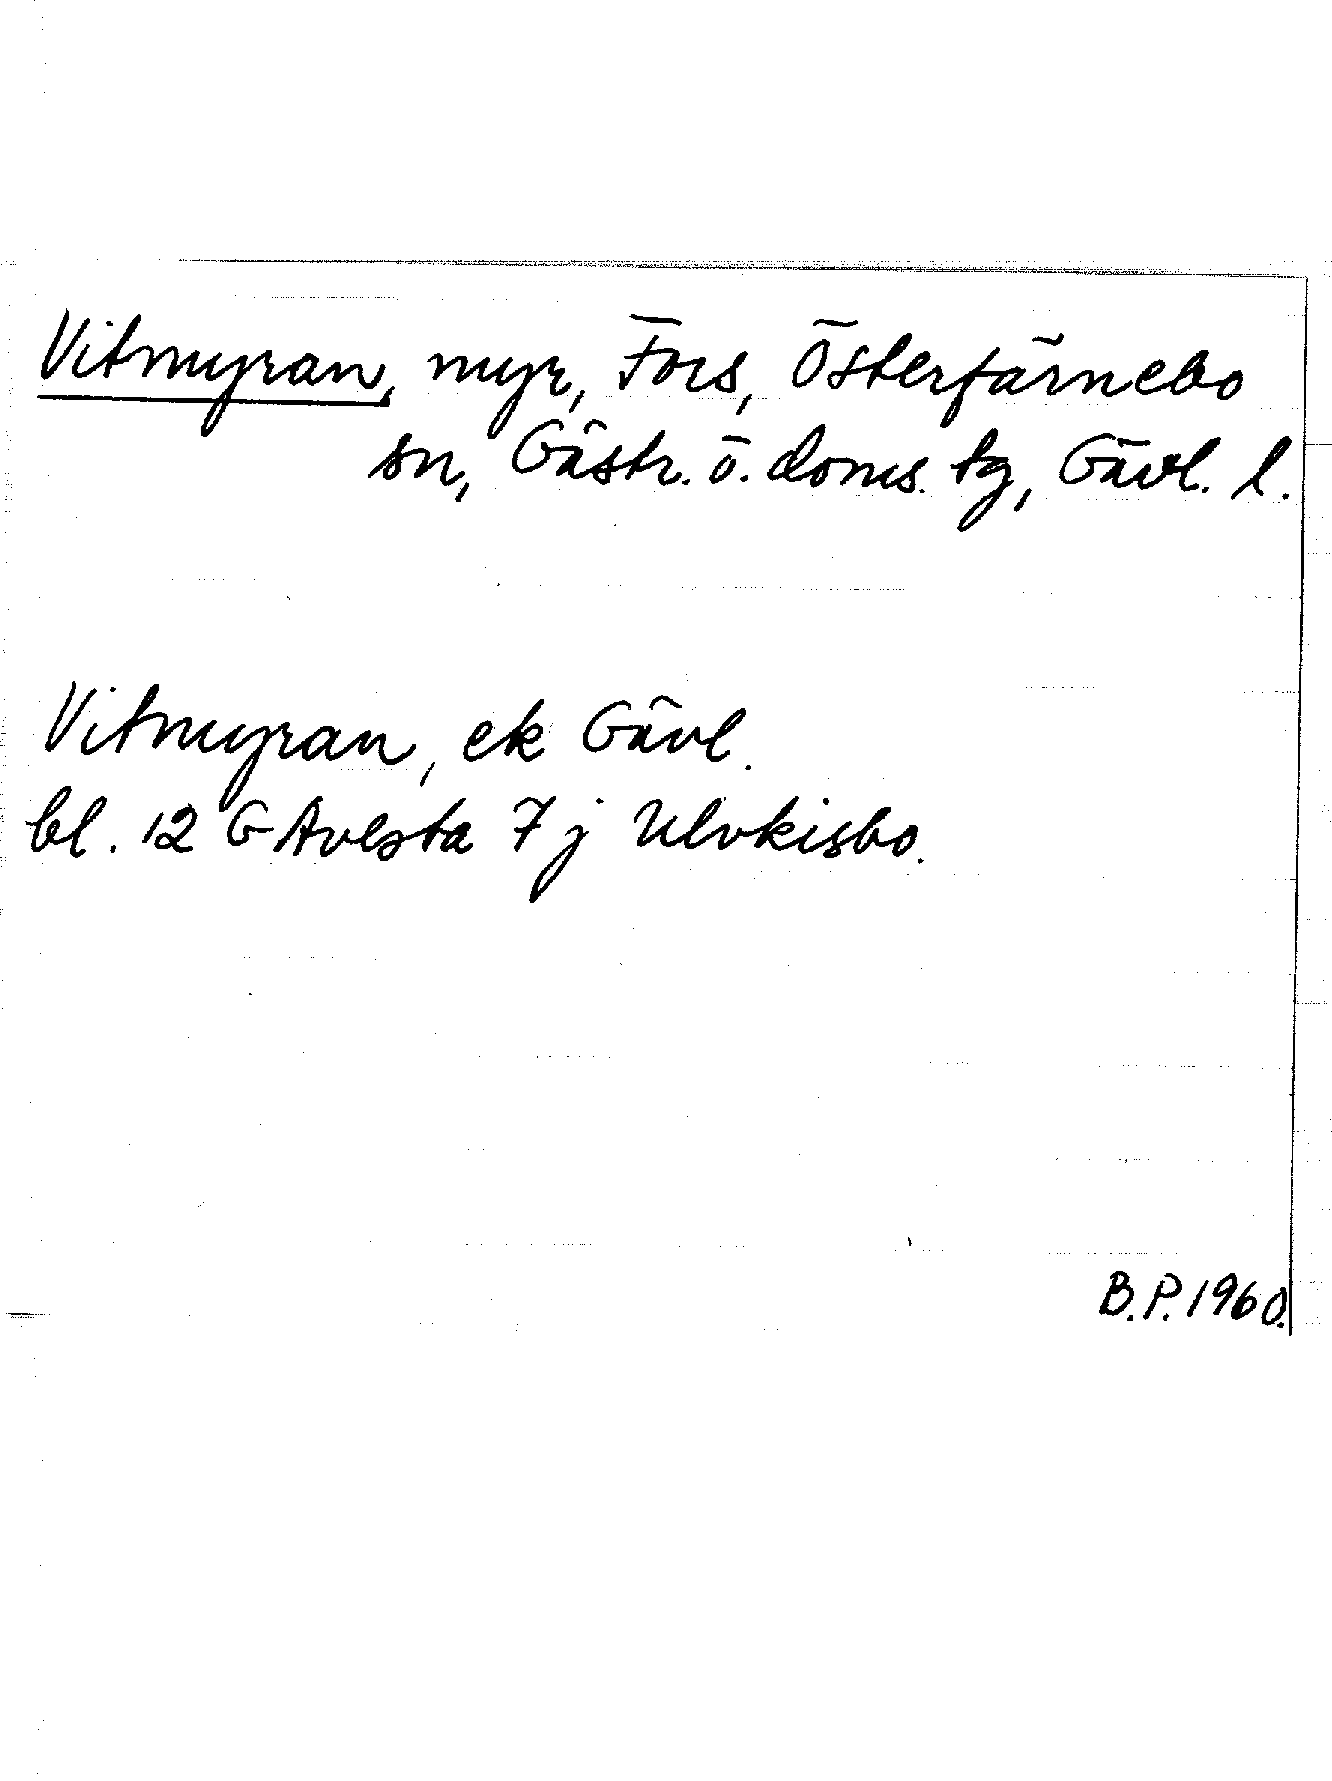 Vitmyran, myr, Fors, Österfärnebo
sn, Gästr. ö. doms. tg, Gävl. l.
Vitmyran, ek Gävl.
bl. 12 G Avesta 7 j Ulvkisbo.
B.P. 1960.